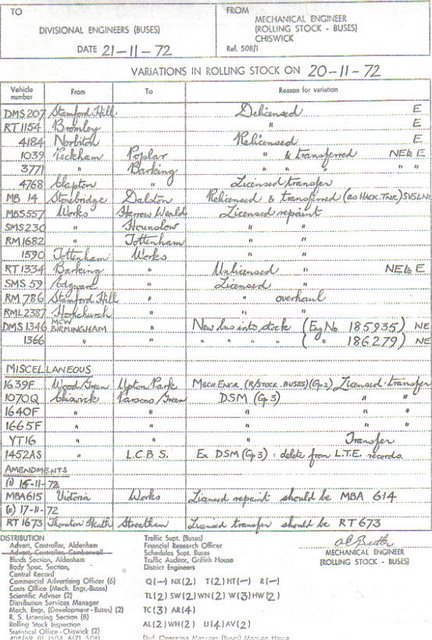 TO
DIVISIONAL ENGINEERS (BUSES)
DATE 21-11-72
FROM
MECHANICAL ENGINEER
(ROLLING STOCK - BUSES)
CHISWICK
Ref. 508/1
VARIATIONS IN ROLLING STOCK ON 20-11-72
Vehicle number From To Reason for variation
DMS 207 Stamford Hill Delicensed E
RT 1154 Bromley " E
4184 Norbiton Relicensed E
1039 Peckham Poplar " & transferred NE to E
3771 " Barking " " " " "
4768 Clapton " Licensed transfer
MB 14 Stonebridge Dalston Relicensed & transferred (as HACK. TNR)
MBS 557 Works Harrow Weald Licensed repaint
SMS 230 " Hounslow " "
RM 1682 " Tottenham " "
1590 Tottenham Works " "
RT 1334 Barking " Unlicensed " NE to E
SMS 59 Edgware " Licensed "
RM 786 Stamford Hill " " overhaul
RML 2387 Hornchurch " " "
DMS 1346 MCW BIRMINGHAM New bus into stock (Eng No 185935) NE
1366 " " " " " ( " 186279) NE
MISCELLANEOUS
1639F Wood Green Upton Park MECH. ENGR. (R/STOCK. BUSES) (Gp 3) Licensed transfer
1070Q Chiswick Parsons Green DSM (Gp 3) " "
1640F " " " " "
1665F " " " " "
YT16 " " " Transfer
1452AS " L.C.B.S. Ex DSM (Gp 3) - delete from L.T.E. records.
AMENDMENTS
(1) 15-11-72
MBA 615 Victoria Works Licensed repaint should be MBA 614
(2) 17-11-72
RT 1673 Thornton Heath Streatham Licensed transfer should be RT 673
DISTRIBUTION
Advert, Controller, Aldenham
Advert, Controller, Camberwell
Blinds Section, Aldenham
Body Spec. Section,
Central Record
Commercial Advertising Officer (6)
Costs Office (Mech. Engr.-Buses)
Scientific Adviser
Distribution Services Manager
Mech. Engr. (Development - Buses) (2)
R. S. Licensing Section (8)
Rolling Stock Inspection
Statistical Office - Chiswick (2)
Traffic Supt. (Buses)
Financial Research Officer
Schedules Supt. Buses
Traffic Auditor, Griffith House
District Engineers
Q(-) NX(2) T(2) HT(-) R(-)
TL(2) SW(2) WN(2) W(3) HW(2)
TC(3) AR(4)
AL(2) WH(2) U(4) AV(2)
MECHANICAL ENGINEER
(ROLLING STOCK - BUSES)